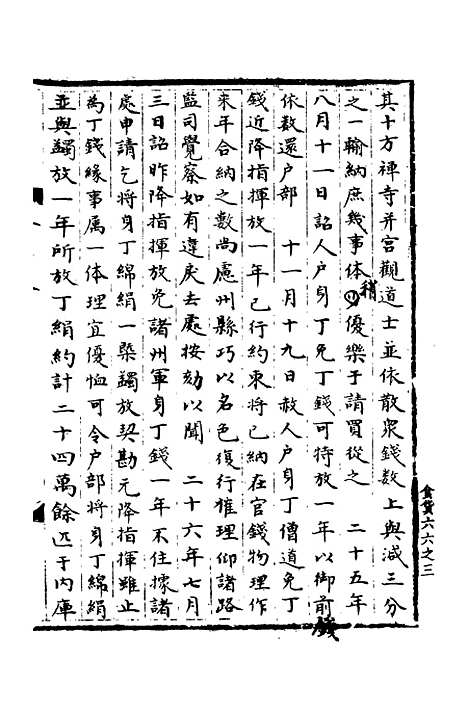 其十方禪寺并宮觀道士並依散眾錢數上與減三分
之一輸納庶幾事体稍優樂于請買從之　二十五年
八月十一日詔人户身丁免丁錢可特放一年以御前錢
依數還户部　十一月十九日赦人户身丁僧道免丁
錢近降指揮放一年已行約束將已納在官錢物理作
來年合納之數尚慮州縣巧以名色復行催理仰諸路
監司覺察如有違戾去處按劾以聞　二十六年七月
三日詔昨降指揮放免諸州軍身丁錢一年不住據諸
處申請乞將身丁綿絹一槩蠲放契勘元降指揮雖止
為丁錢緣事属一体理宜優恤可令户部將身丁綿絹
並與蠲放一年所放丁絹約計二十四萬餘匹于内庫
食貨六六之三